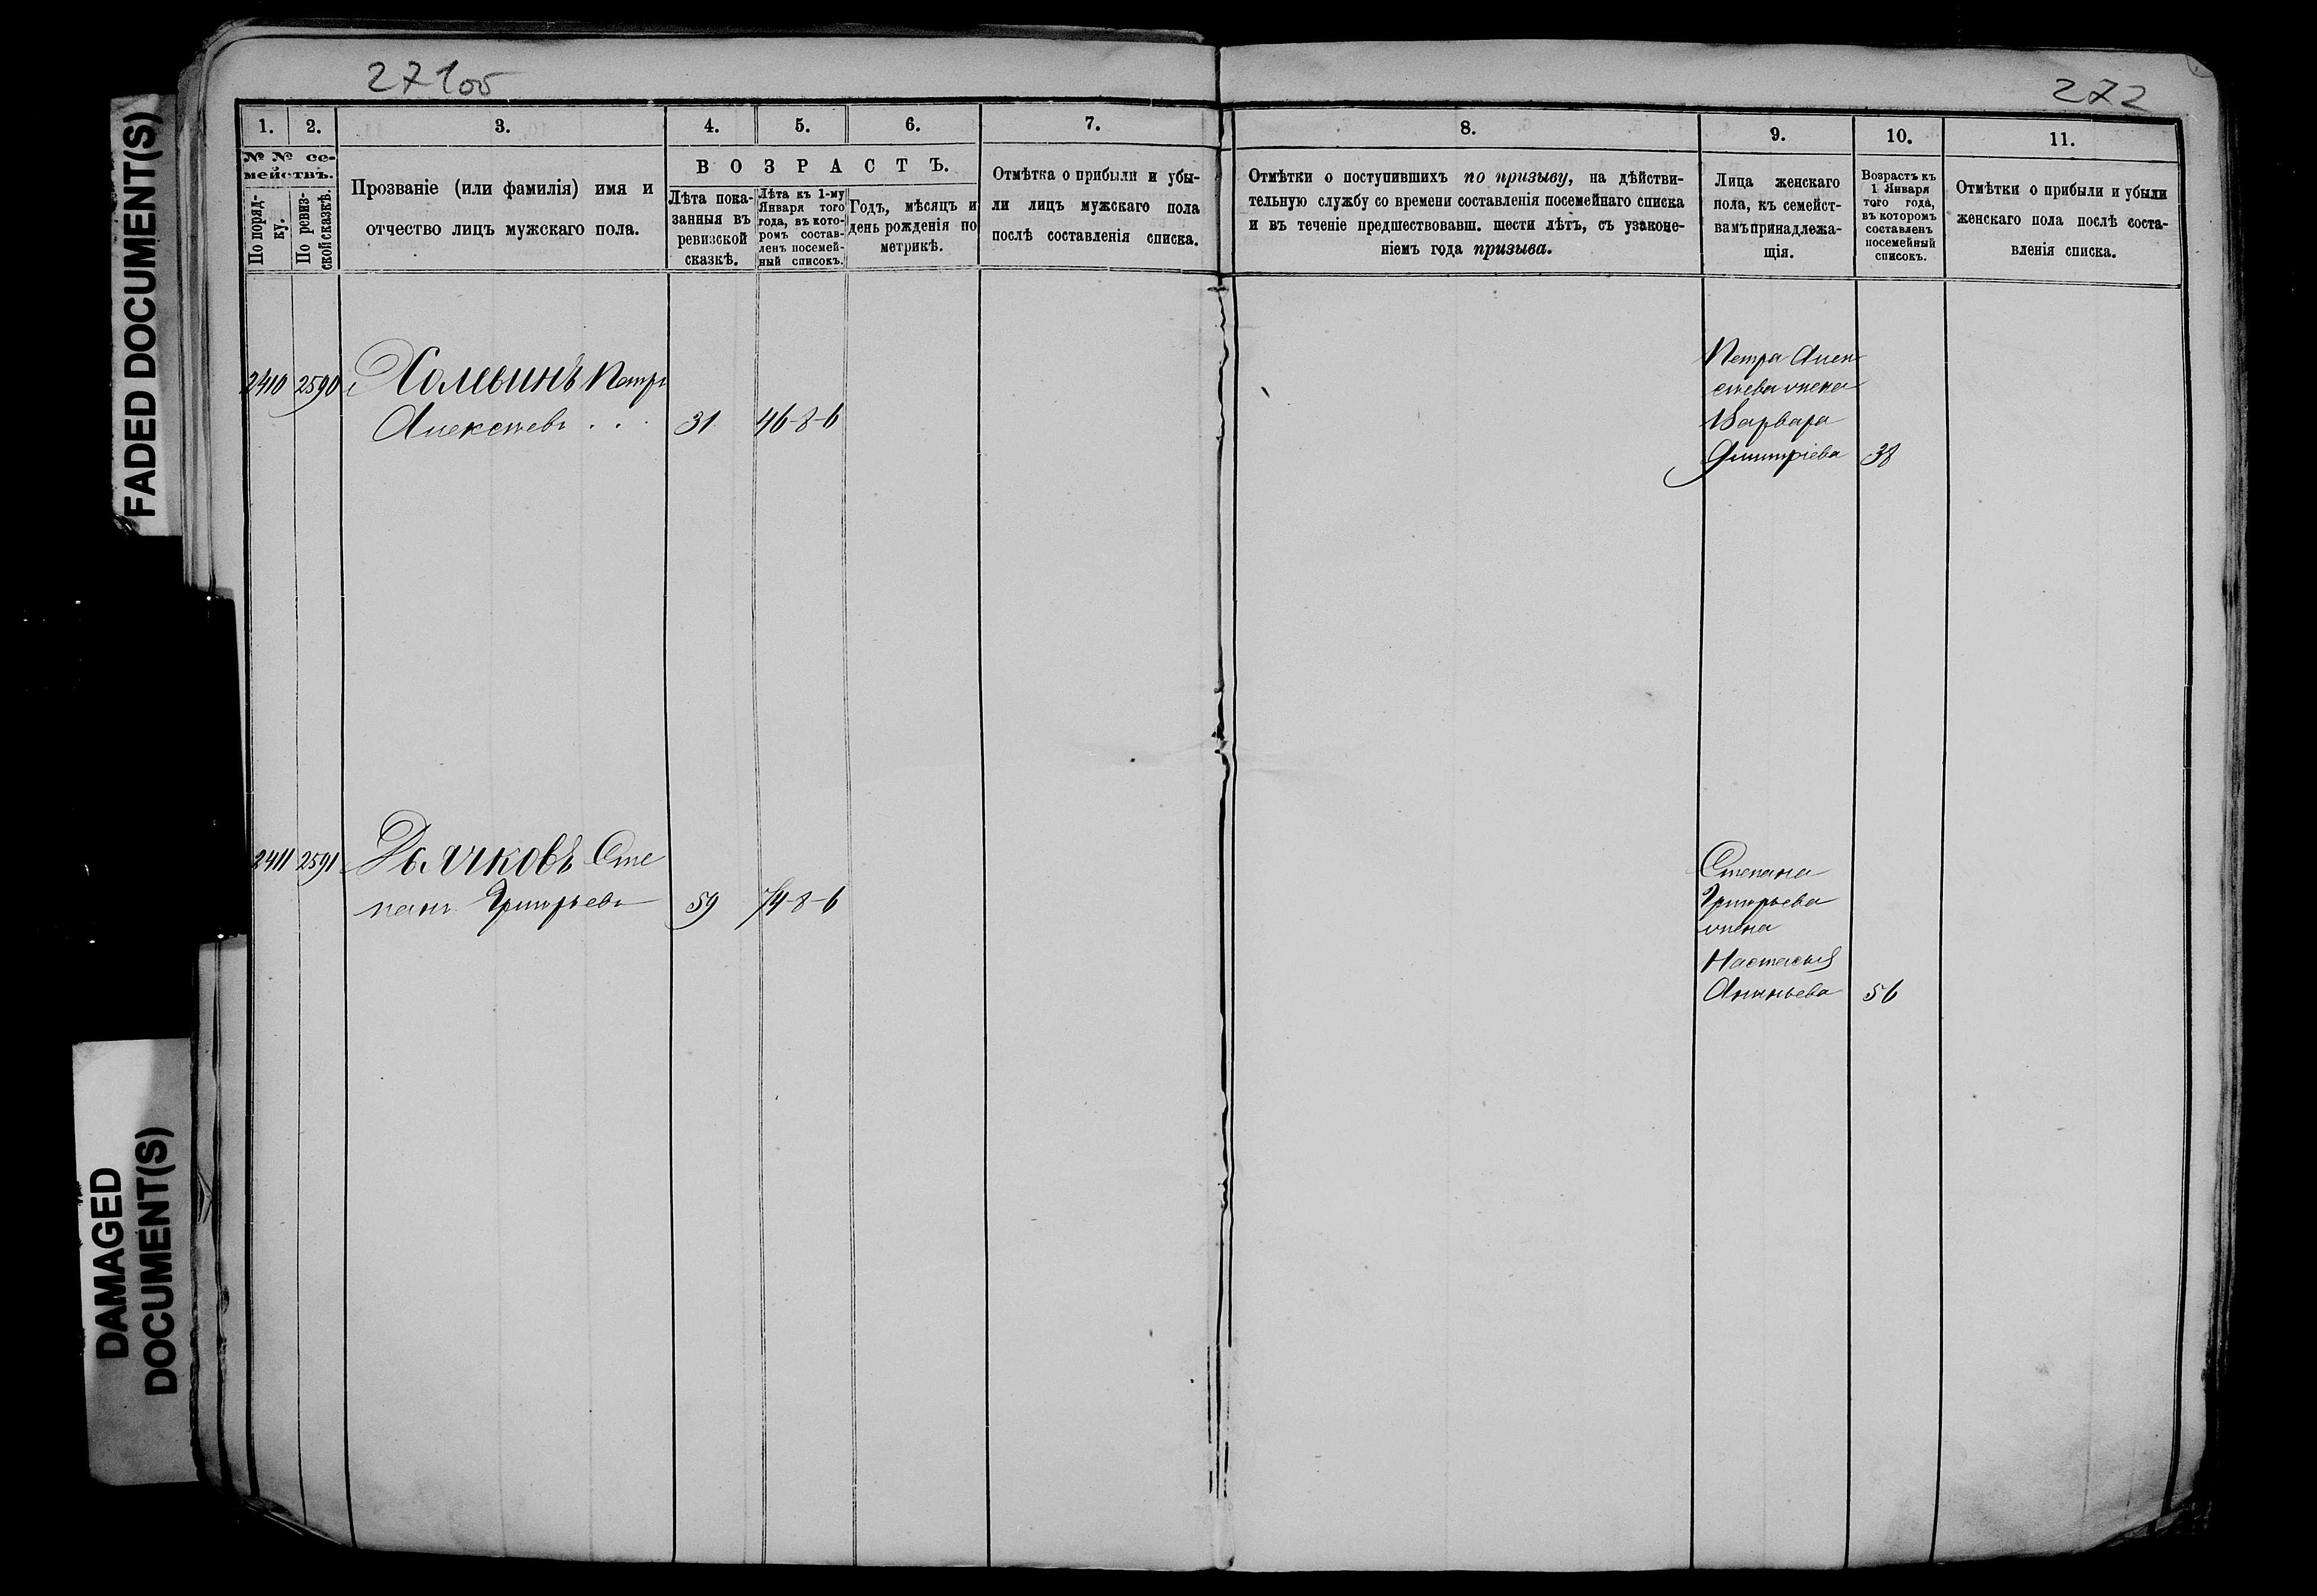 FADED DOCUMENT(S)
DAMAGED
DOCUMENT(S)
271об
272
1.
2.
3.
4.
5.
6.
7.
8.
9.
10.
11.
№ № се-
мействъ.
По поряд-
ку.
По ревиз-
ской сказкѣ.
Прозваніе (или фамилія) имя и
отчество лицъ мужскаго пола.
ВОЗРАСТЪ.
Лѣта пока-
занныя въ
ревизской
сказкѣ.
Лѣта къ 1-му
Января того
года, въ кото-
ромъ состав-
ленъ посемей-
ный списокъ.
Годъ, мѣсяцъ и
день рожденія по
метрикѣ.
Отмѣтка о прибыли и убы-
ли лицъ мужскаго пола
послѣ составленія списка.
Отмѣтки о поступившихъ по призыву, на дѣйстви-
тельную службу со времени составленія посемейнаго списка
и въ теченіе предшествовавш. шести лѣтъ, съ узаконе-
ніемъ года призыва.
Лица женскаго
пола, къ семейст-
вамъ принадлежа-
щія.
Возрастъ къ
1 Января
того года,
въ которомъ
составленъ
посемейный
списокъ.
Отмѣтки о прибыли и убыли
женскаго пола послѣ соста-
вленія списка.
2410 2590 Петръ
Алексѣевъ . . . 31 46-8-6
Петра Алек
сѣева жена
Варвара
Дмитріева 38
2411 2591 Дьячковъ Сте
панъ Григорьевъ 59 74-8-6
Степана
Григорьева
жена
Настасья
Ананьева 56